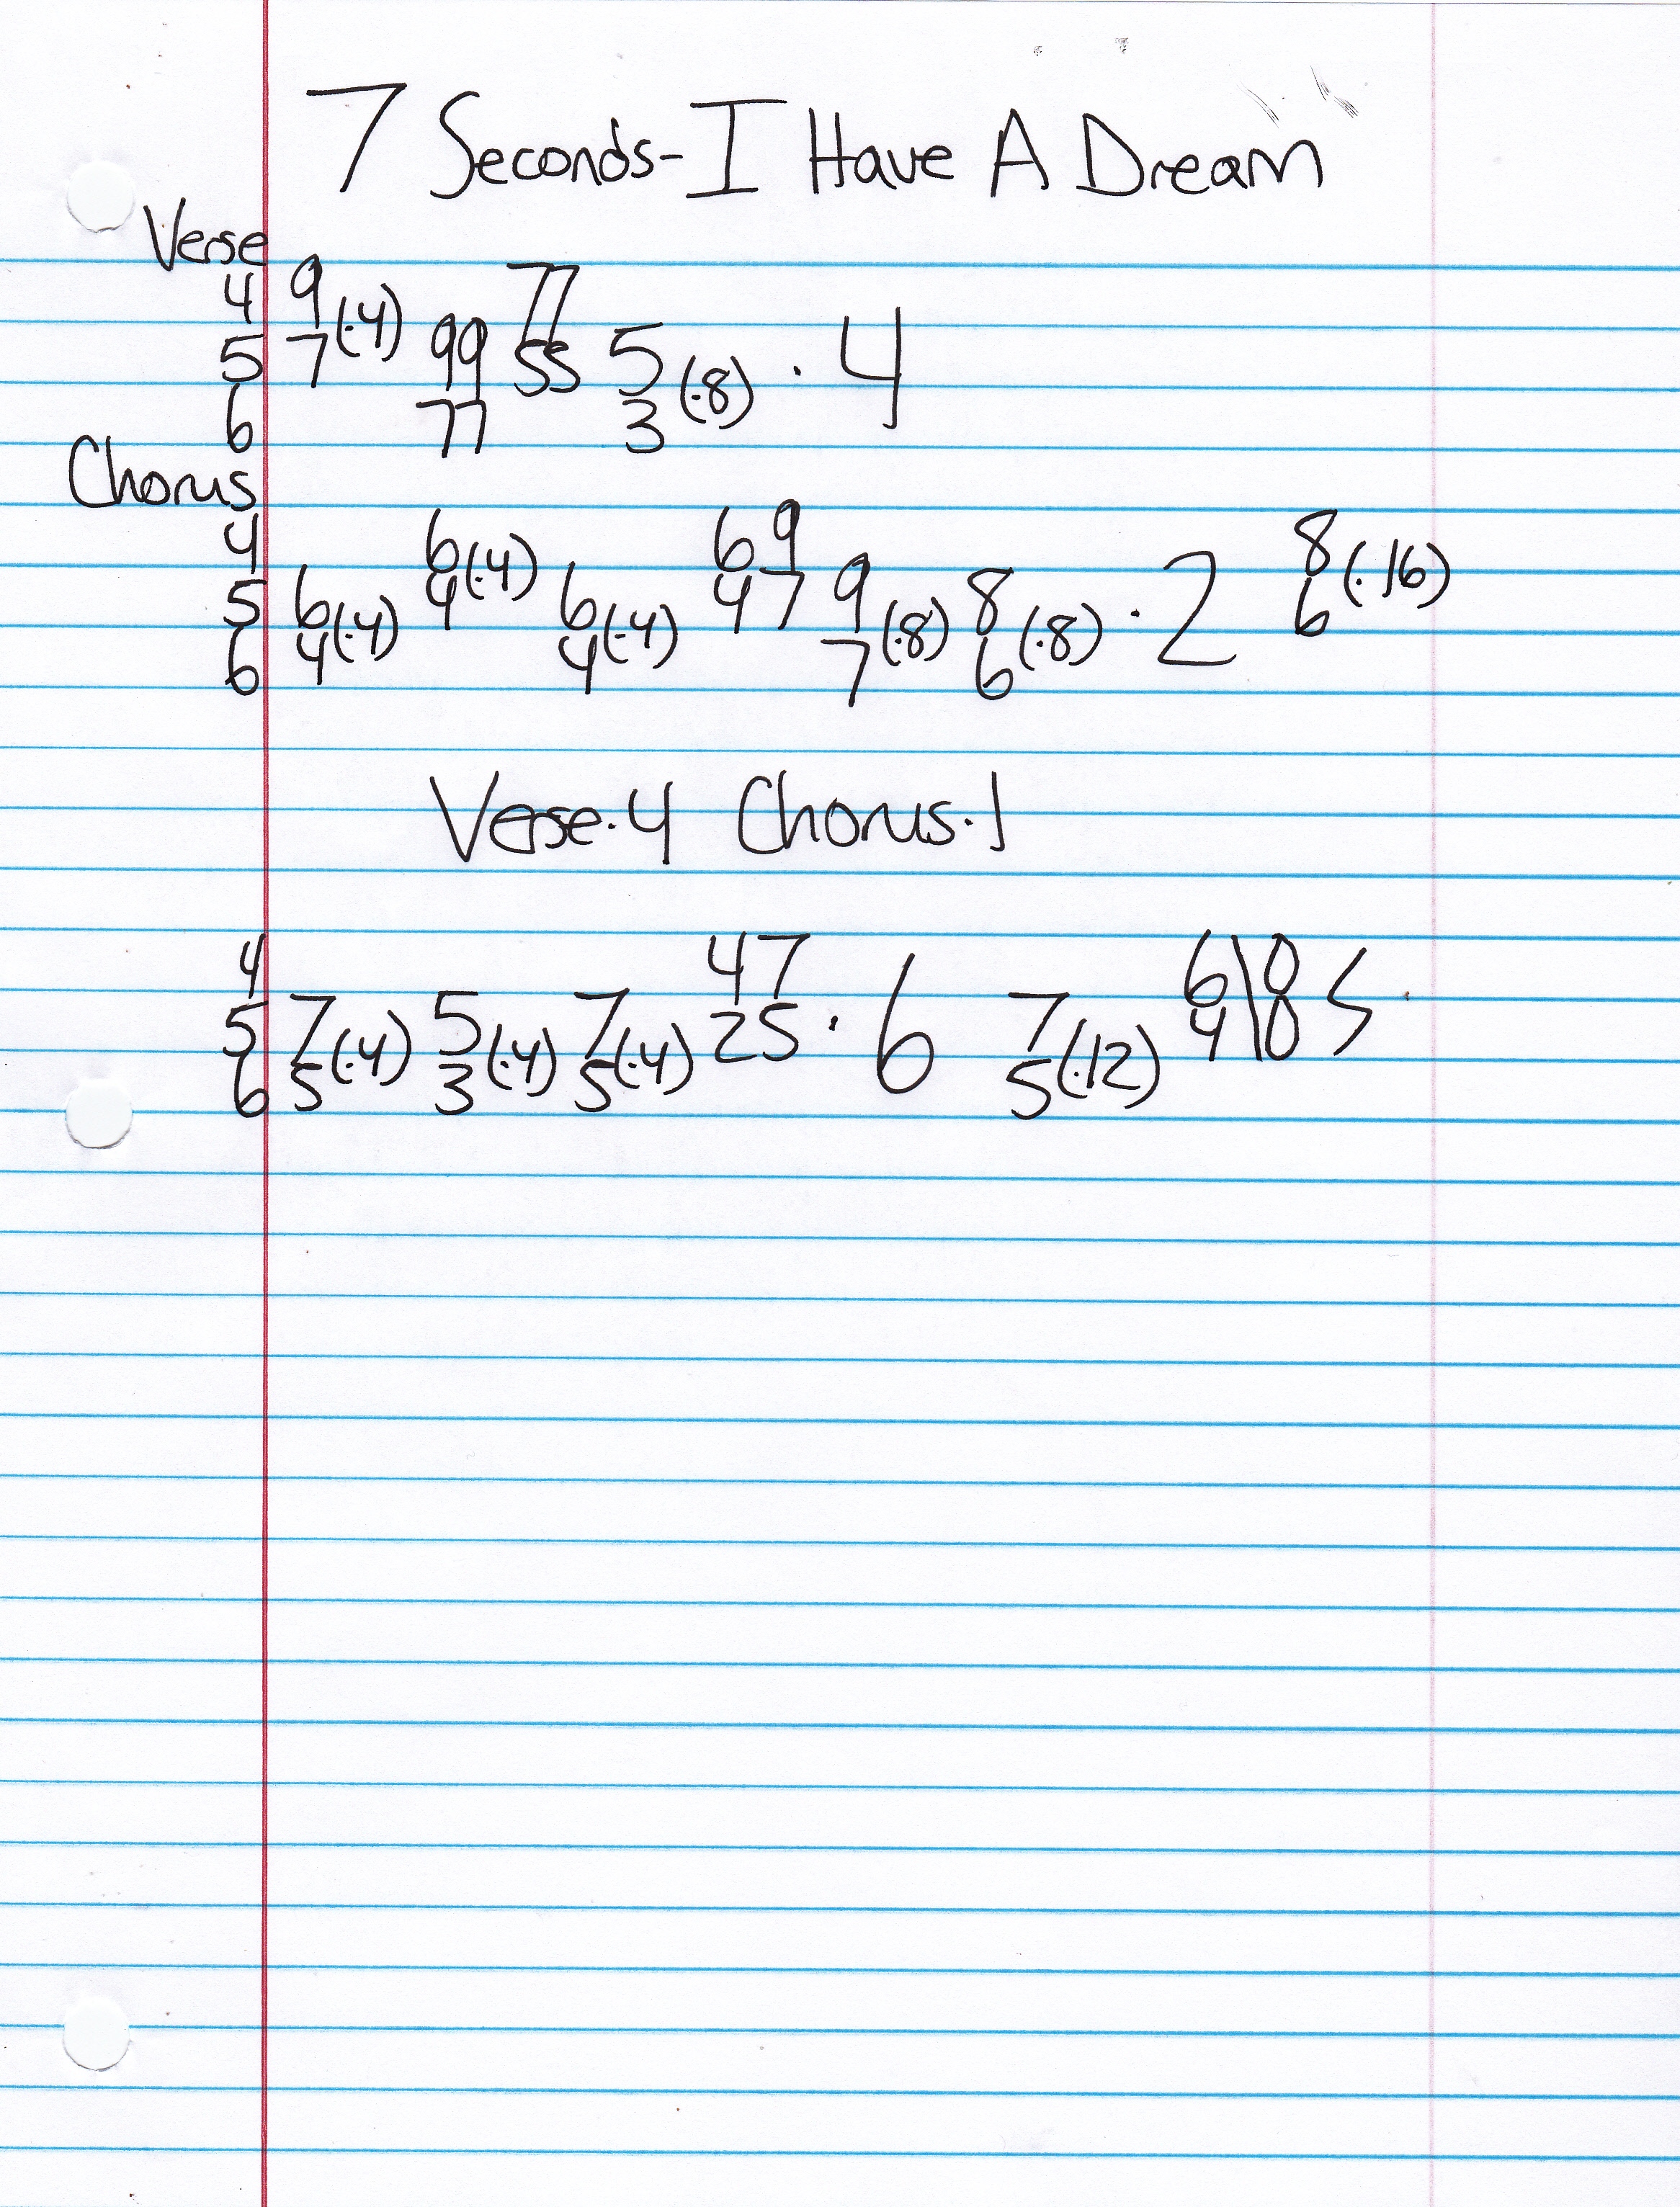 7 Seconds - I Have A Dream
Verse
4 9 77
5 7 (·4) 99 55 5 (·8) · 4
6 77 3
Chorus
4 6 (·4) 6 9 8 (·16)
5 6 (·4) 4 6 (·4) 4 7 9 (·8) 8 (·8) · 2 6
6 4 4 7 6
Verse·4 Chorus·1
4 4 7 6\0
5 7 (·4) 5 (·4) 7 (·4) 2 5 · 6 7 (·12) 4\0
6 5 3 5 5